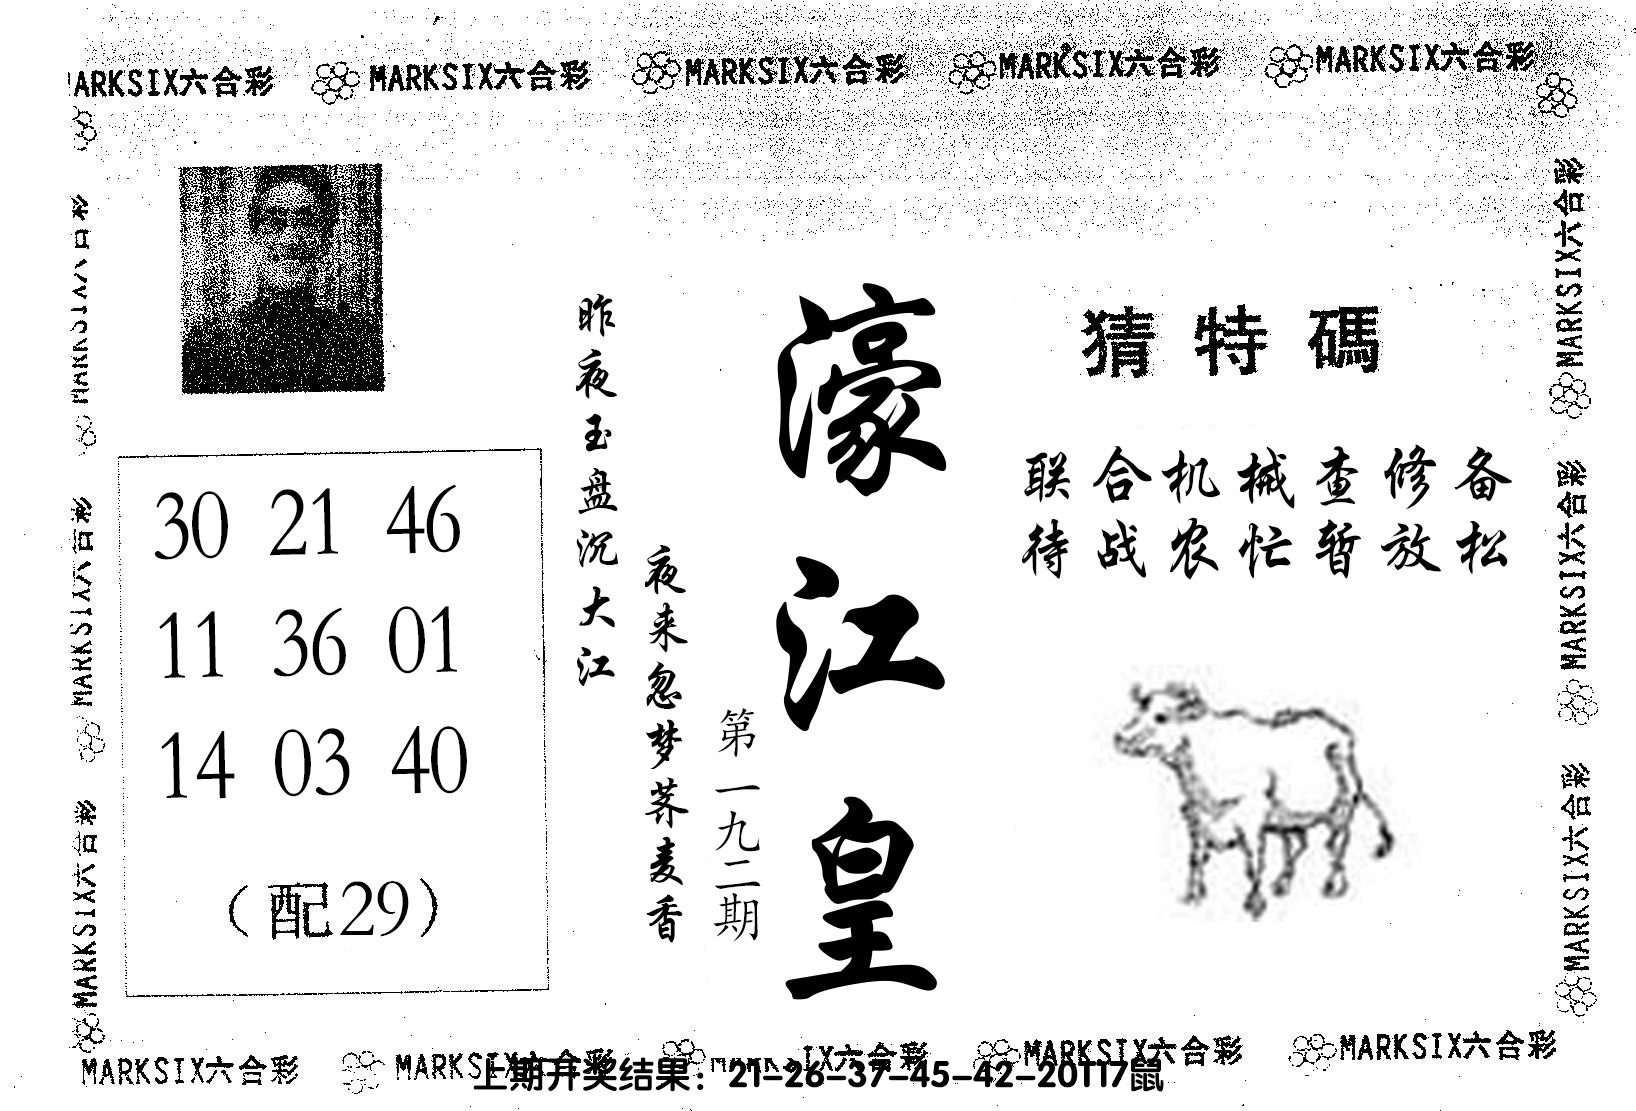 MARKSIX六合彩 MARKSIX六合彩 MARKSIX六合彩 MARKSIX六合彩
MARKSIX六合彩
MARKSIX六合彩
MARKSIX六合彩
MARKSIX六合彩
MARKSIX六合彩
30 21 46
11 36 01
14 03 40
（配29）
昨夜玉盘沉大江
夜来忽梦荞麦香
第一九二期
濠江皇
猜特碼
联合机械查修备
待战农忙暂放松
MARKSIX六合彩
MARKSIX六合彩
MARKSIX六合彩
MARKSIX六合彩 MARKSIX六合彩 六合彩 MARKSIX六合彩 MARKSIX六合彩
上期开奖结果：21-26-37-45-42-20T17鼠